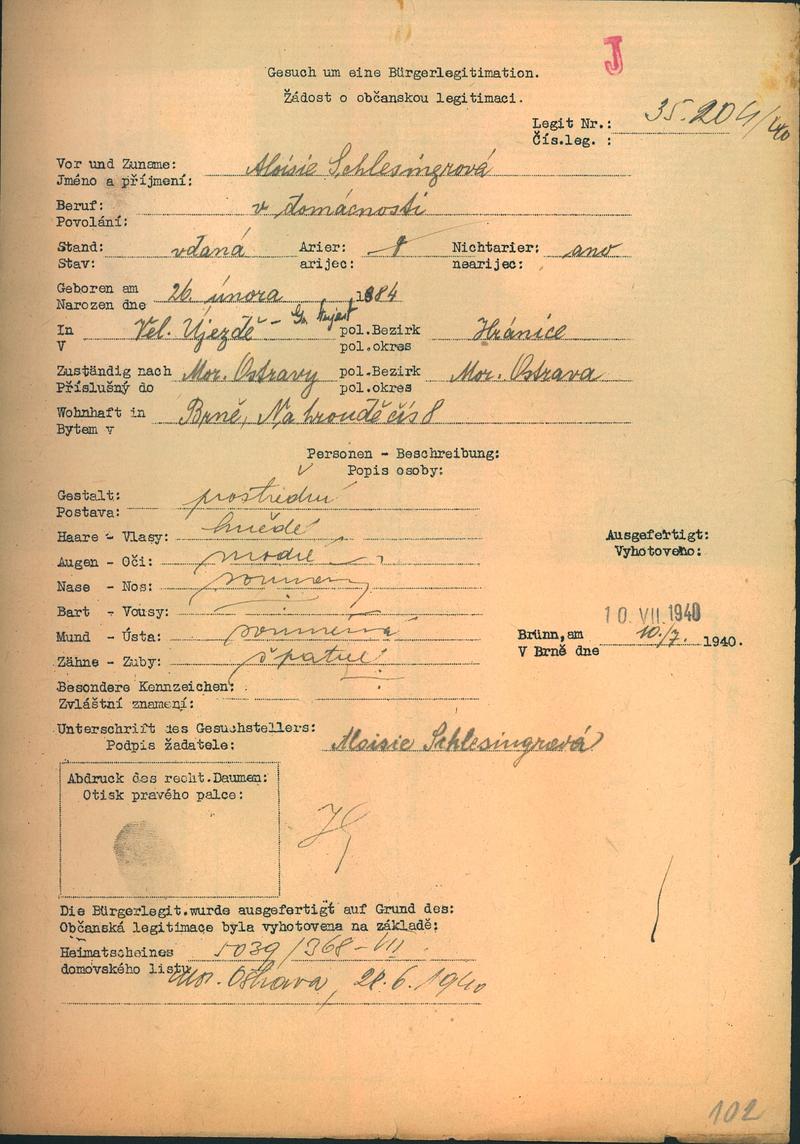 J
Gesuch um eine Bürgerlegitimation.
Žádost o občanskou legitimaci.
Legit Nr.: 35.204/40
Čís.leg. :
Vor und Zuname: Aloisie Schlesingrová
Jméno a příjmení:
Beruf: v domácnosti
Povolání:
Stand: vdaná Arier: Nichtarier: ano
Stav: arijec: nearijec:
Geboren am 26. února 1884
Narozen dne
In Vel. Újezdě - Gr. pol.Bezirk Hránice
V pol.okres
Zuständig nach Mor. Ostravy pol.Bezirk Mor. Ostrava
Příslušný do pol.okres
Wohnhaft in Brně, Na hroudě čís 8
Bytem v
Personen - Beschreibung:
Popis osoby:
Gestalt: prostřední
Postava:
Haare - Vlasy: hnědé
Augen - Oči: modré
Nase - Nos: souměrný
Bart - Vousy:
Mund - Ústa: souměrná
Zähne - Zuby: špatné
Besondere Kennzeichen:
Zvláštní znamení:
Ausgefertigt:
Vyhotoveno:
10. VII. 1940
Brünn, am 10./7. 1940.
V Brně dne
Unterschrift des Gesuchstellers:
Podpis žadatele: Aloisie Schlesingrová
Abdruck des recht.Daumen:
Otisk pravého palce:
Die Bürgerlegit.wurde ausgefertigt auf Grund des:
Občanská legitimace byla vyhotovena na základě:
Heimatscheines 5039/368-VII
domovského listu Mor. Ostrava, 28.6.1940
102